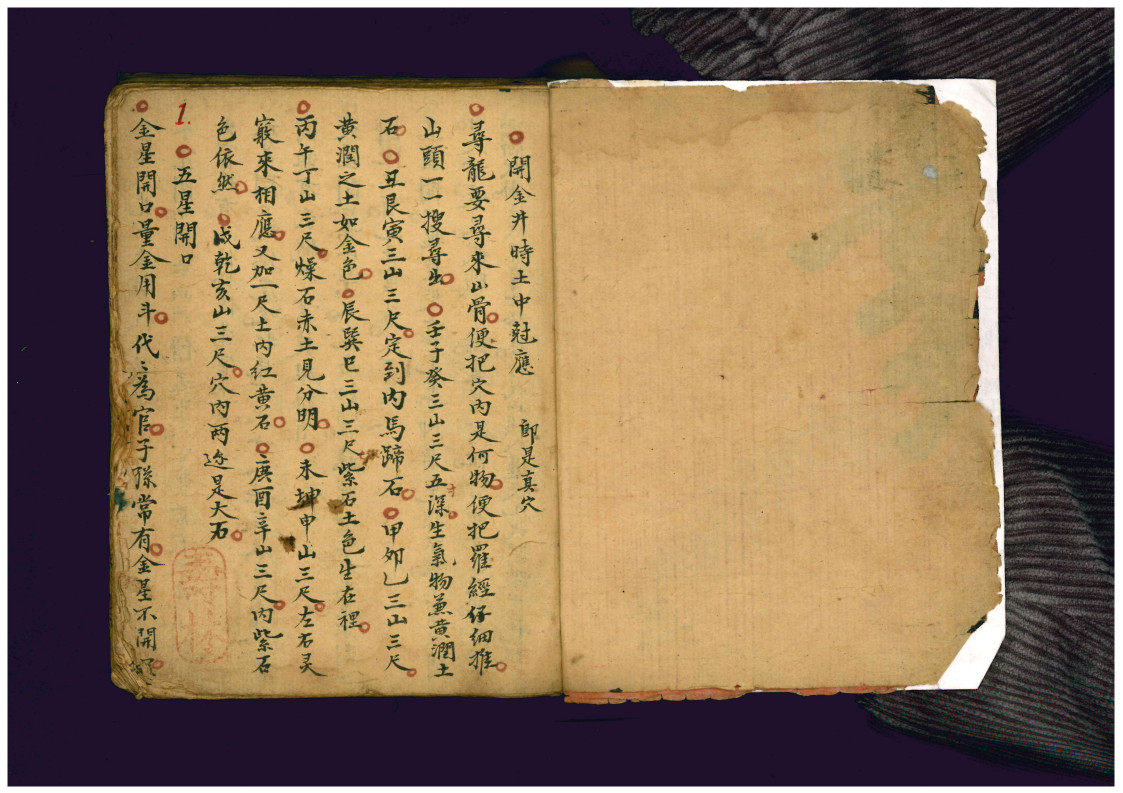 開金井時土中尅應 即是真穴
尋龍要尋來山骨便把穴內是何物便把羅經仔細推
山頭一一搜尋出壬子癸三山三尺五寸深生氣物兼黃潤土
石丑艮寅三山三尺定到內馬蹄石甲夘乙三山三尺
黃潤之土如金色辰巽巳三山三尺紫石土色生在裡
丙午丁山三尺燥石赤土見分明未坤申山三尺左右灵
竅來相應又加一尺土內紅黃石庚酉辛山三尺內紫石
色依然戍乾亥山三尺穴內兩边是大石
1.
五星開口
金星開口量金用斗代〻為官子孫常有金星不開